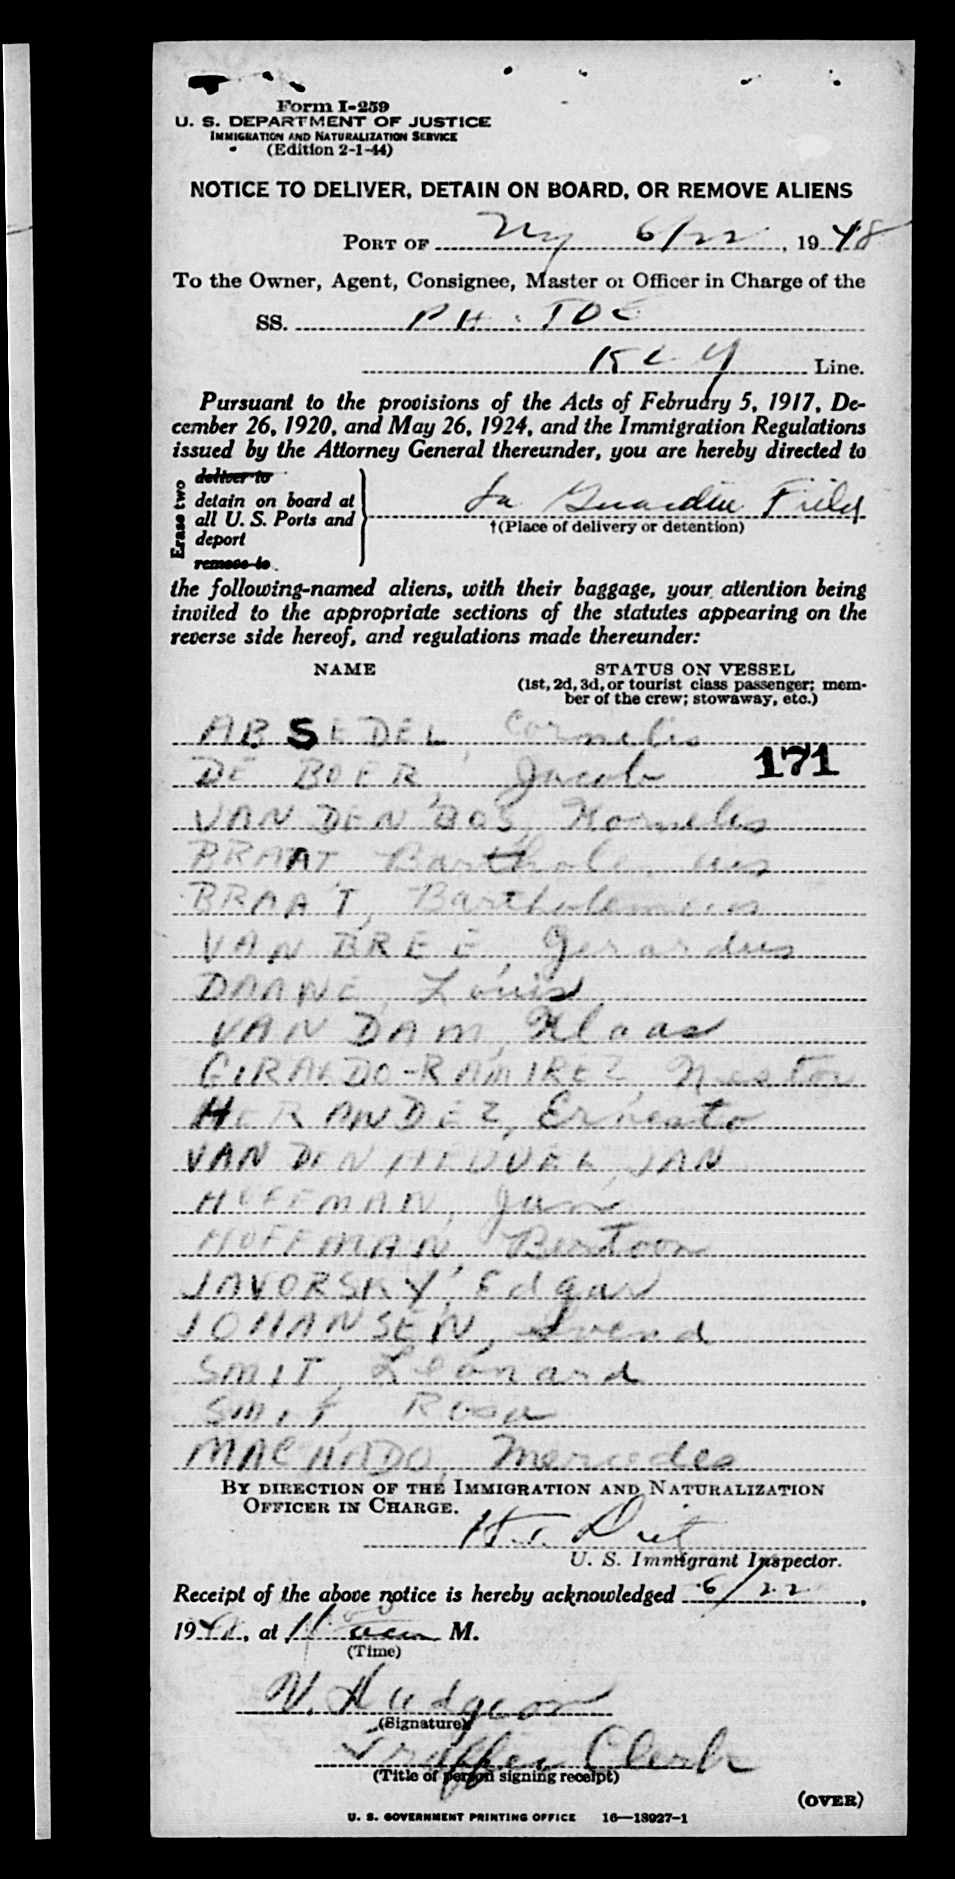 Form I-259
U. S. DEPARTMENT OF JUSTICE
IMMIGRATION AND NATURALIZATION SERVICE
(Edition 2-1-44)
NOTICE TO DELIVER, DETAIN ON BOARD, OR REMOVE ALIENS
PORT OF Ny 6/22, 1948
To the Owner, Agent, Consignee, Master or Officer in Charge of the
SS. PH-TDE
KLM Line.
Pursuant to the provisions of the Acts of February 5, 1917, De-
cember 26, 1920, and May 26, 1924, and the Immigration Regulations
issued by the Attorney General thereunder, you are hereby directed to
Erase two
deliver to
detain on board at
all U. S. Ports and
deport
remove to
La Guardia Field
†(Place of delivery or detention)
the following-named aliens, with their baggage, your attention being
invited to the appropriate sections of the statutes appearing on the
reverse side hereof, and regulations made thereunder:
NAME STATUS ON VESSEL
(1st, 2d, 3d, or tourist class passenger; mem-
ber of the crew; stowaway, etc.)
ABSEDEL, Cornelis
171
DE BOER, Jacob
VAN DEN BOS, Kornelis
BRAAT Bartholemeus
BRAAT, Bartholemeus
VAN BREE, Gerardus
DAANE, Louis
VAN DAM, Klaas
GIRALDO-RAMIREZ, Nestor
HERANDEZ, Ernesto
VAN DEN HEUVEL, JAN
HOFFMAN, Jan
HOFFMAN, Bertoon
JAVORSKY, Edgar
JOHANSEN, Svend
SMIT, Leonard
SMIT, Rosa
MACHADO, Mercedes
BY DIRECTION OF THE IMMIGRATION AND NATURALIZATION
OFFICER IN CHARGE.
H.T.
U. S. Immigrant Inspector.
Receipt of the above notice is hereby acknowledged 6/22,
1948, at 11 M.
(Time)
N. Hudgeon
(Signature)
Traffic Clerk
(Title of person signing receipt)
(OVER)
U. S. GOVERNMENT PRINTING OFFICE 16—18927-1